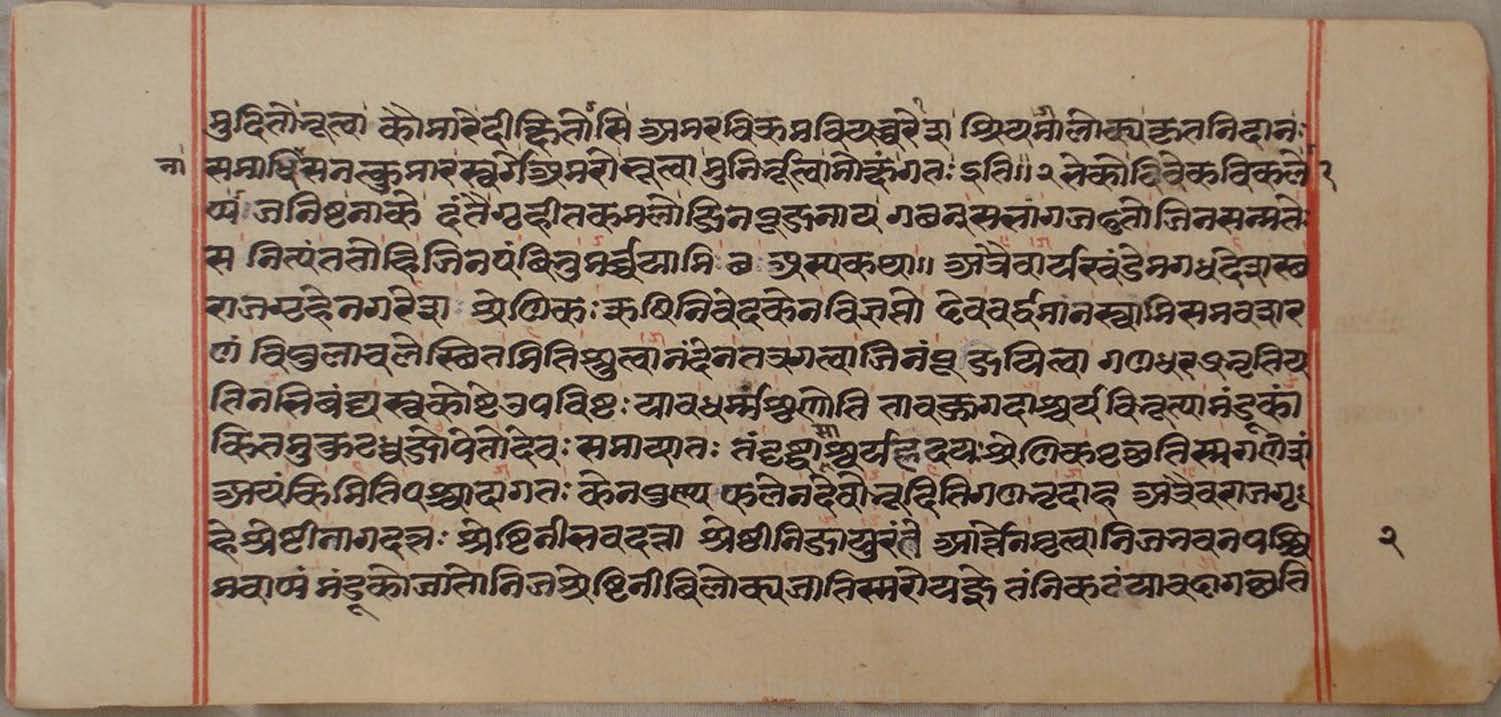 मुदितो भूत्वा कौमारे दीक्षितोसि अमरविक्रमवियच्चरेश श्रियमालोक्य कृतनिदानः
समाधिं सनत्कुमारस्वर्गेऽमरो भूत्वा मुनिर्भूत्वा मोक्षं गतः ऽति॥ २ भेको विवेकविकलो
प्य जनिष्टनाके दंतैर्गृहीतकमलो जिनपूजनाय गछन् सभां गजहतो जिनसन्मतेः
स नित्यं ततो हि जिनपं विभुमर्च्चयामि ३ अस्य कथा॥ अत्रैवार्यखंडे मगधदेशस्छ
राजगृहे नगरेश श्रेणिकः ऋषिनिवेदकेन विज्ञप्तो देव वर्द्धमानस्वामिसमवशर
णं विपुलाचले स्छितमिति श्रुत्वानंदेन तत्र गत्वा जिनं पूजयित्वा गणधरप्रभृतिय
तिनभिवंद्य स्वकोष्टे उपविष्टः यावधर्म्मं श्रुणोति तावज्जगदाश्चर्यविभूत्या मंडूकां
कितमुकटध्वजोपेतो देवः समायातः तं दृष्ट्वा साश्चर्यहृदयः श्रेणिक पृछति स्म गणेशं
अयं किमिति पश्चादागतः केन पुण्यफलेन देवोभूदिति गणभृदाह अत्रैव राजगृ
हे श्रेष्टी नागदत्तः श्रेष्टिनी भवदत्ता श्रेष्ठी निजायुरंते आर्त्तेन मृत्वा निजभवनपश्चि
मवाप्यं मंडूको जातो निजश्रेष्टिनी विलोक्य जातिस्मरो यज्ञे तं निकटं यावदागछति
२